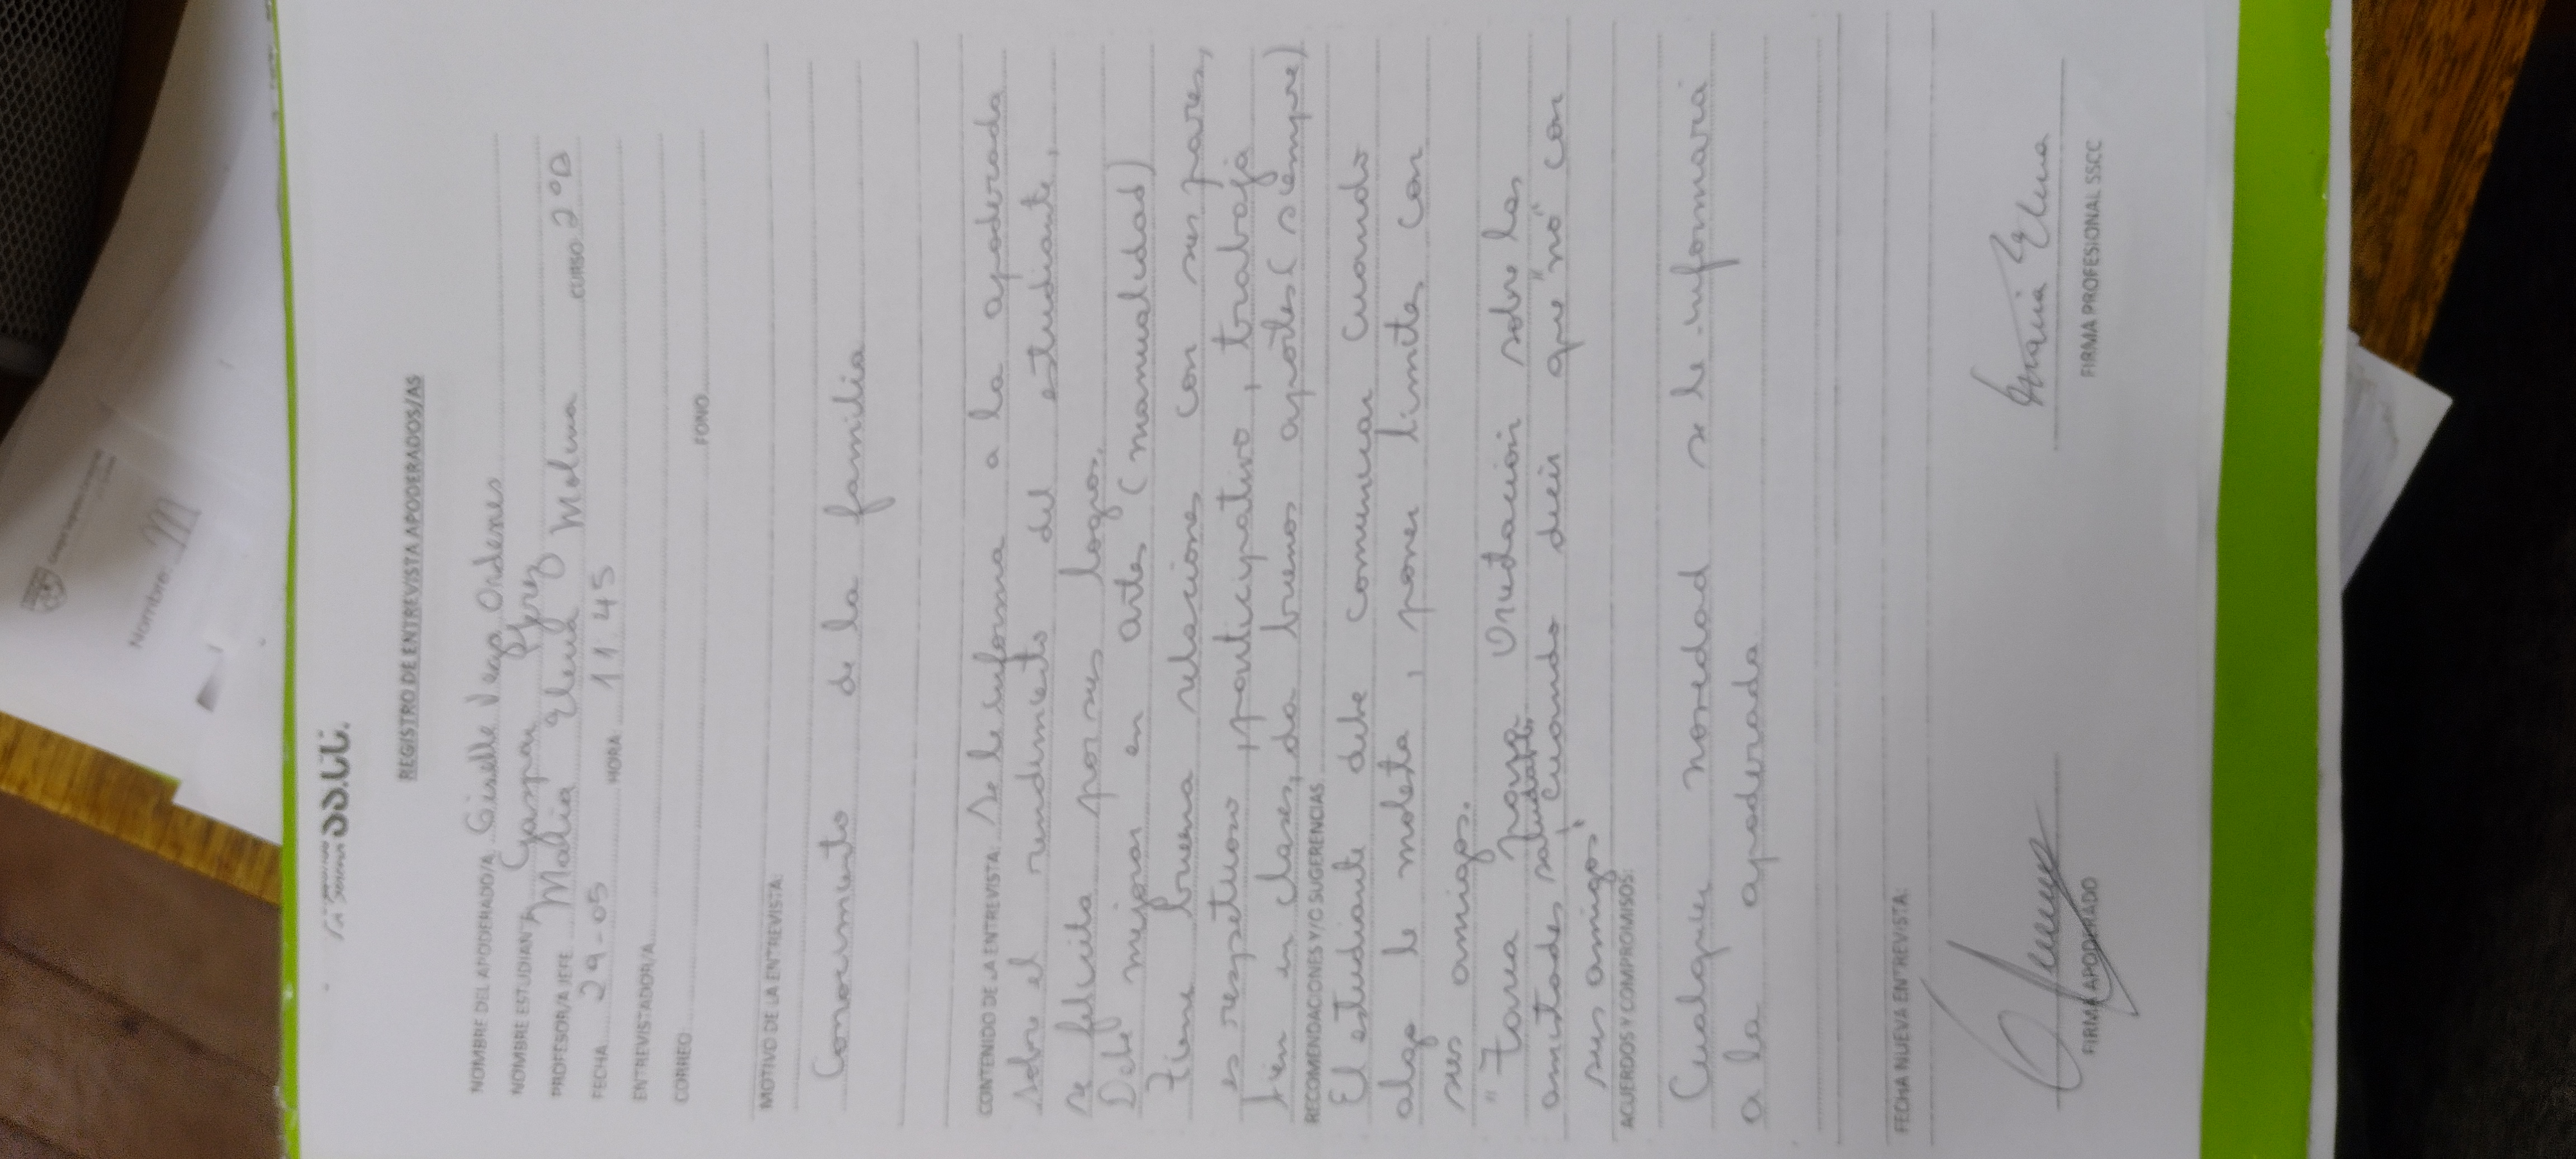 REGISTRO DE ENTREVISTA APODERADOS/AS
NOMBRE DEL APODERADO/A Giselle Vega Ordenes
NOMBRE ESTUDIANTE Gaspar Jerez
PROFESOR/A JEFE María Elena Molina CURSO 2°D
FECHA 29-05 HORA 11.45
ENTREVISTADOR/A
CORREO FONO
MOTIVO DE LA ENTREVISTA:
Conocimiento de la familia
CONTENIDO DE LA ENTREVISTA: Se le informa a la apoderada
sobre el rendimiento del estudiante,
se felicita por sus logros.
Debe mejorar en artes (manualidad)
Tiene buena relaciones con sus pares,
es respetuoso, participativo, trabaja
bien en clases, da buenos aportes (siempre)
RECOMENDACIONES Y/O SUGERENCIAS
El estudiante debe comunicar cuando
algo le molesta, poner limites con
sus amigos.
"Tarea para Orientación sobre las
amistades saludables, cuando decir que "no" con
sus amigos"
ACUERDOS Y COMPROMISOS:
Cualquier novedad se le informará
a la apoderada
FECHA NUEVA ENTREVISTA:
María Elena
FIRMA APODERADO FIRMA PROFESIONAL SSCC
Nombre: